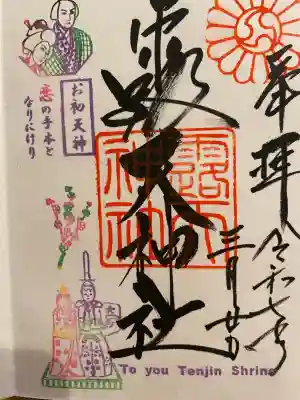 奉拝
令和七年
三月廿日
露天神社
露天
神社
お初天神
恋の手本と
なりにけり
To you Tenjin Shrine